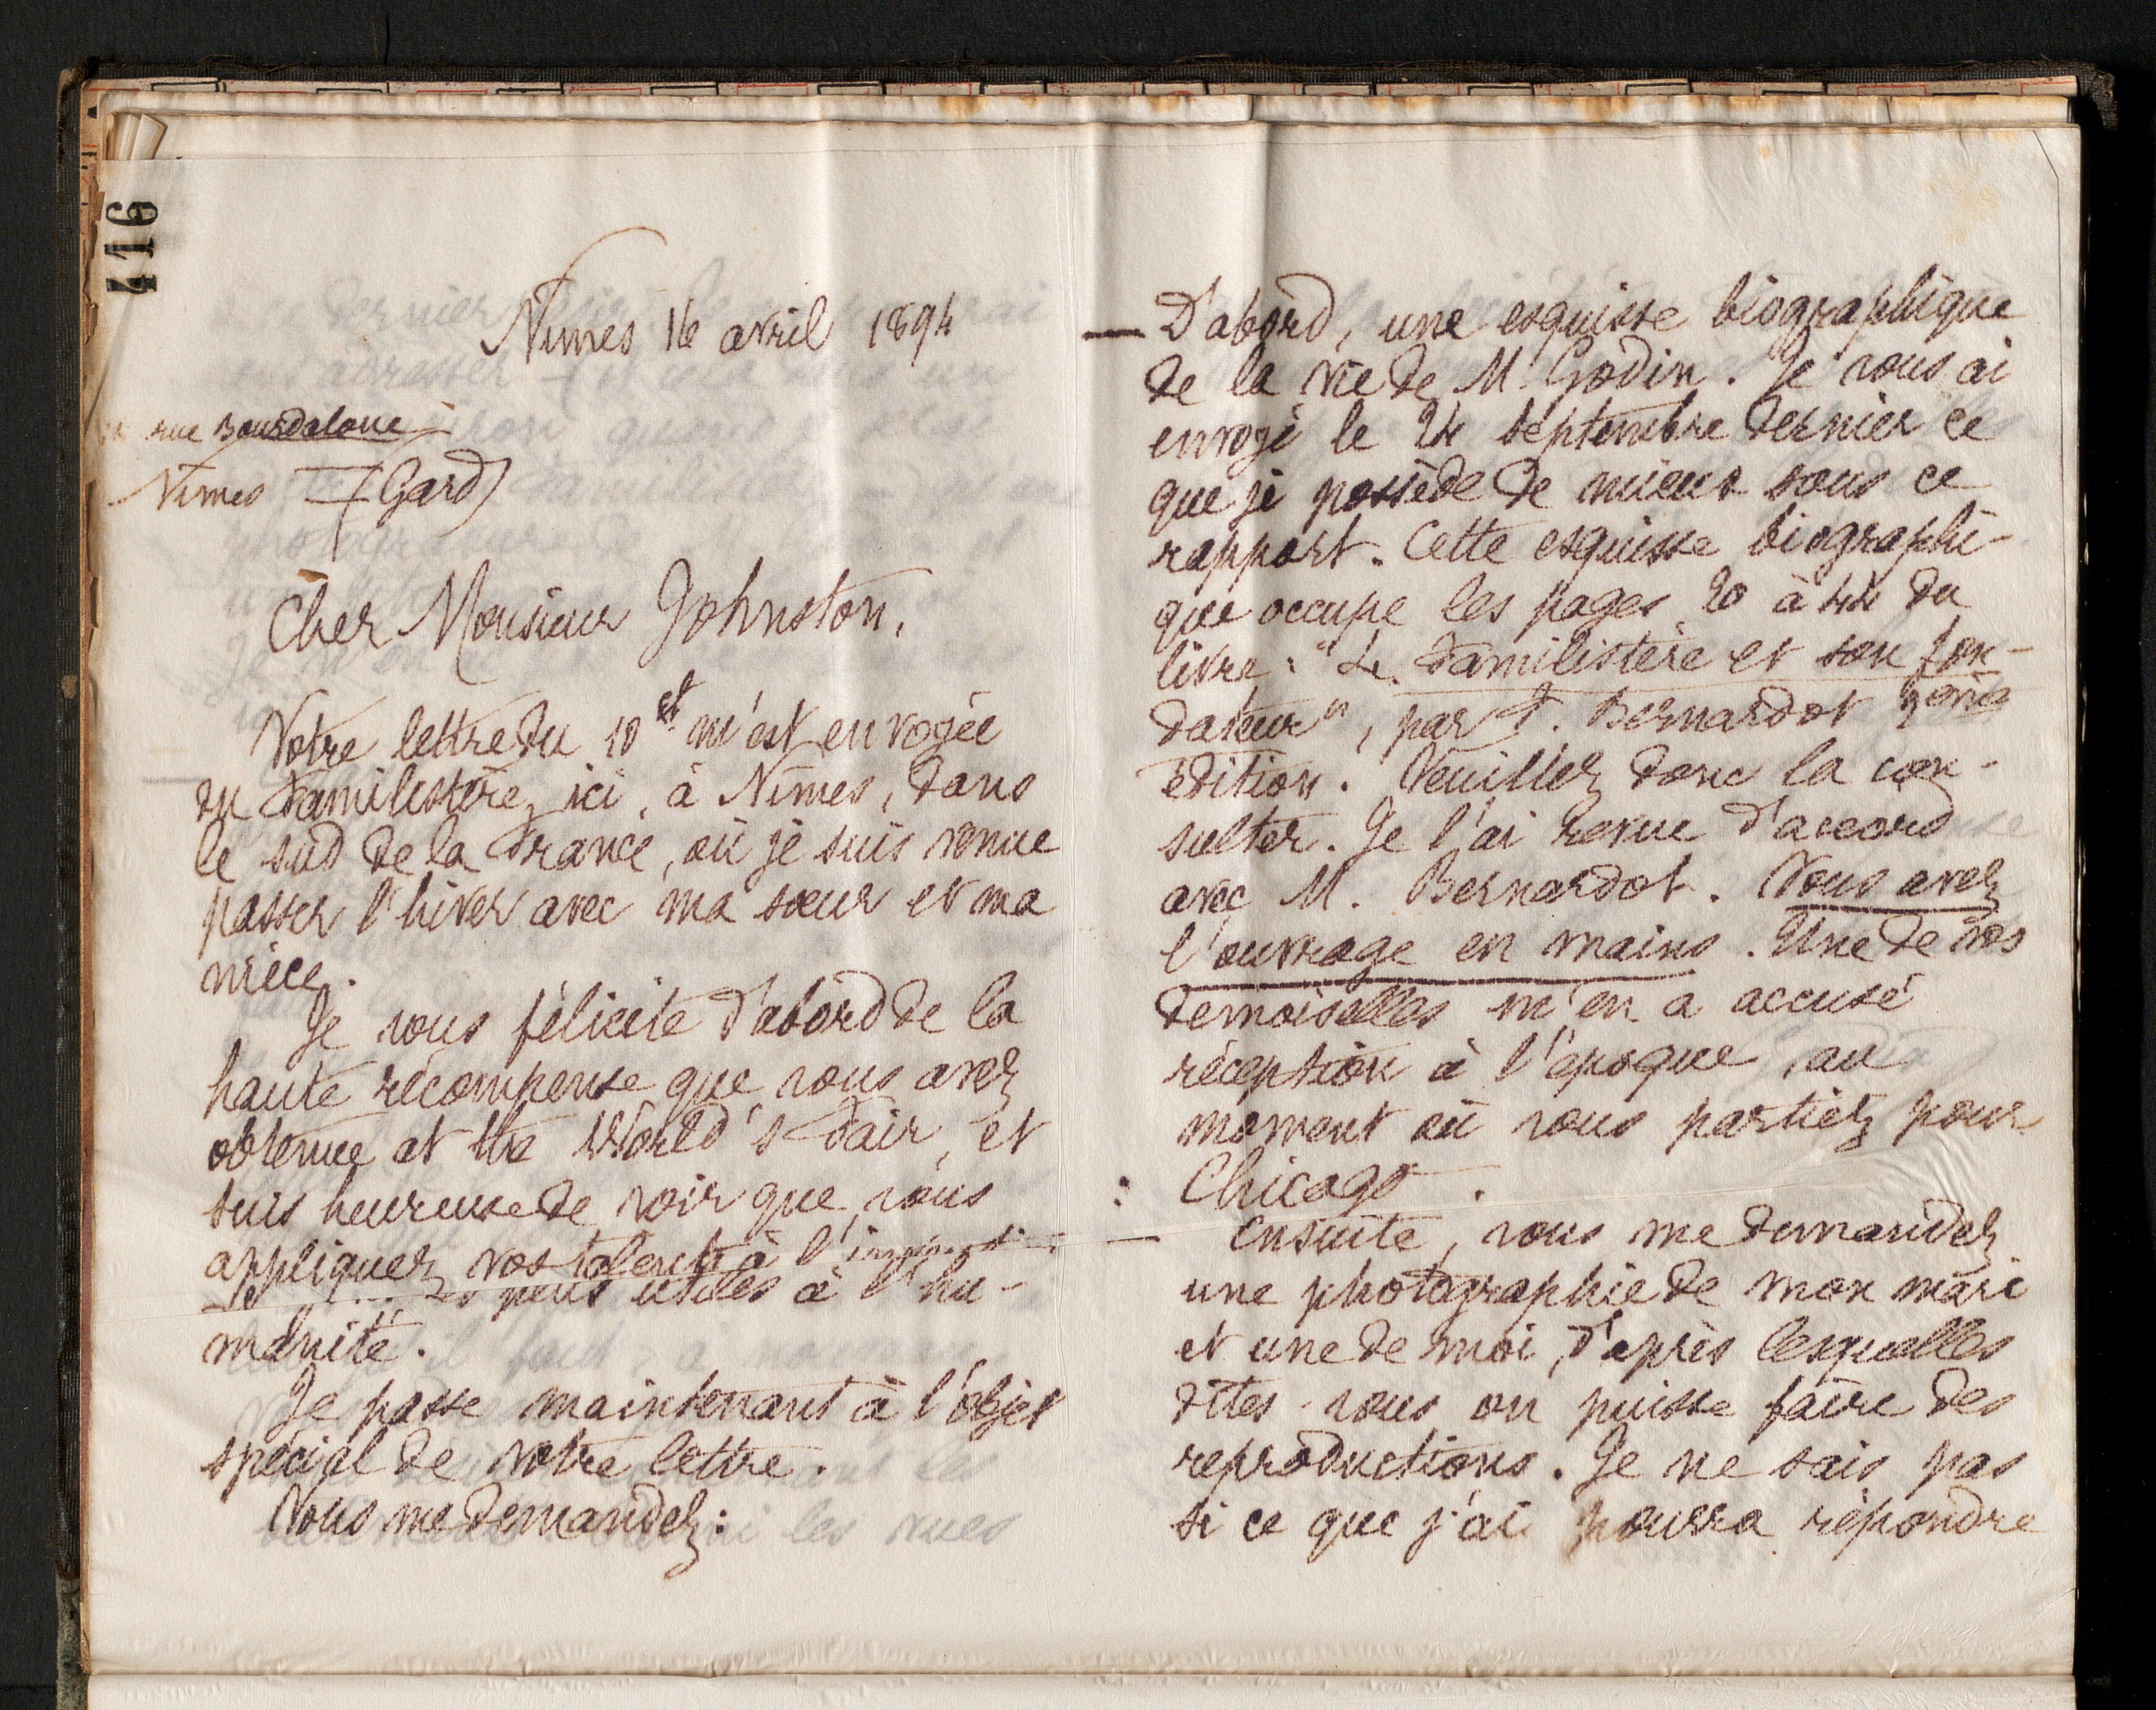 416
Nimes 16 avril 1894
rue Bourdaloue
Nimes (Gard)
Cher Monsieur Johnston,
Votre lettre du 10 ct m'est envoyée
du Familistère, ici, à Nîmes, dans
le sud de la France, où je suis venue
passer l'hiver avec ma sœur et ma
nièce.
Je vous félicite d'abord de la
haute récompense que vous avez
obtenue at the World's Fair, et
suis heureuse de voir que vous
appliquez vos talents à l'
plus utiles à l'hu-
manité.
Je passe maintenant à l'objet
spécial de votre lettre.
Vous me demandez:
— D'abord, une esquisse biographique
de la vie de M. Godin. Je vous ai
envoyé le 24 septembre dernier ce
que je possède de mieux sous ce
rapport. Cette esquisse biographi-
que occupe les pages 20 à 44 du
livre: "Le Familistère et son fon-
dateur", par F. Bernardot 2ème
édition. Veuillez donc la con-
sulter. Je l'ai revue d'accord
avec M. Bernardot. Vous avez
l'ouvrage en mains. Une de vos
demoiselles m'en a accusé
réception à l'époque, au
moment où vous partiez pour
Chicago.
— Ensuite, vous me demandez
une photographie de mon mari
et une de moi, d'après lesquelles
dites-vous on puisse faire des
reproductions. Je ne sais pas
si ce que j'ai pourra répondre